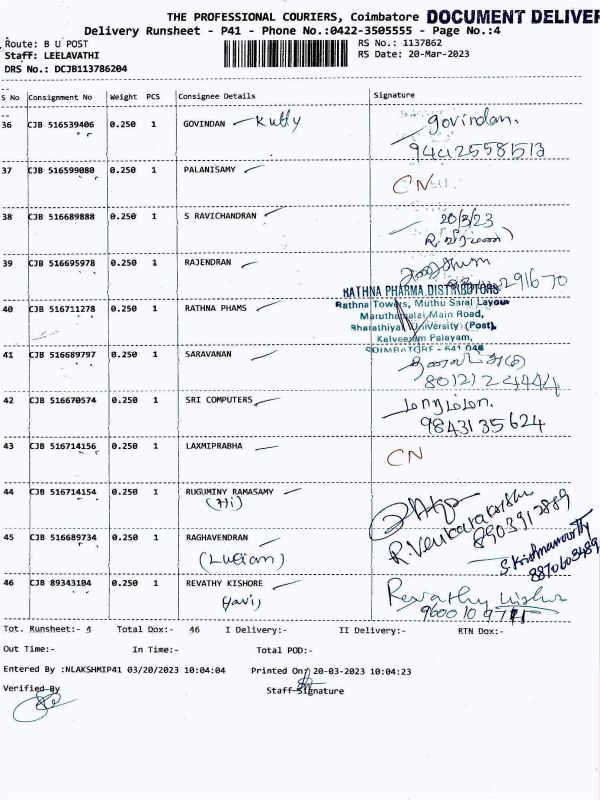 THE PROFESSIONAL COURIERS, Coimbatore DOCUMENT DELIVER
Delivery Runsheet - P41 - Phone No.:0422-3505555 - Page No.:4
Route: B U POST RS No.: 1137862
Staff: LEELAVATHI RS Date: 20-Mar-2023
DRS No.: DCJB113786204
S No Consignment No Weight PCS Consignee Details Signature
36 CJB 516539406 0.250 1 GOVINDAN Kutty govindan.
9442558513
37 CJB 516599080 0.250 1 PALANISAMY CN
38 CJB 516689888 0.250 1 S RAVICHANDRAN 20/3/23
39 CJB 516695978 0.250 1 RAJENDRAN 291670
RATHNA PHARMA DISTRIBUTORS
40 CJB 516711278 0.250 1 RATHNA PHAMS Rathna Towers, Muthu Saral Layout
Maruthamalai Main Road,
Bharathiyar University (Post),
Kalveeram Palayam,
COIMBATORE - 641 046
41 CJB 516689797 0.250 1 SARAVANAN
8012124444
42 CJB 516670574 0.250 1 SRI COMPUTERS
9843135624
43 CJB 516714156 0.250 1 LAXMIPRABHA CN
44 CJB 516714154 0.250 1 RUGUMINY RAMASAMY
(Hi) R. Venkatakrishn
8903912889
45 CJB 516689734 0.250 1 RAGHAVENDRAN S Krishnamoorthy
8870603489
46 CJB 89343104 0.250 1 REVATHY KISHORE Revathy Kishor
9600109711
Tot. Runsheet:- 4 Total Dox:- 46 I Delivery:- II Delivery:- RTN Dox:-
Out Time:- In Time:- Total POD:-
Entered By :NLAKSHMIP41 03/20/2023 10:04:04 Printed On: 20-03-2023 10:04:23
Verified By Staff Signature